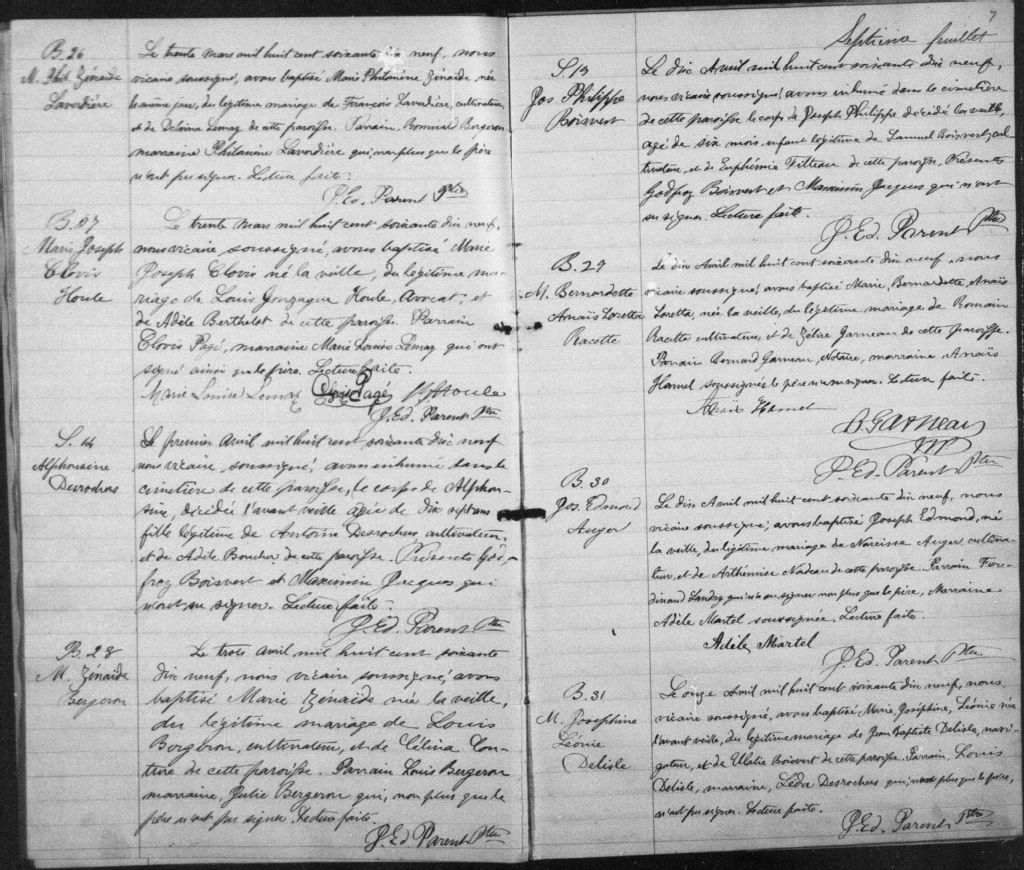 B. 26
M. Zénaïde
Lavordière
Le trente mars mil huit cent soixante dix neuf, nous
vicaire soussigné, avons baptisé Marie Philomène Zénaïde, née
le même jour, du légitime mariage de François Lavordière, cultivateur,
et de Lemay de cette paroisse. Parrain, Romuald Bergeron
marraine Philomène Lavordière qui, non plus que le père
n'ont pu signer. Lecture faite.
J. Ed. Parent Ptre
B. 27
Marie Joseph
Clovis
Houle
Le trente mars mil huit cent soixante dix neuf,
nous vicaire soussigné, avons baptisé Marie
Joseph Clovis né la veille, du légitime ma-
riage de Louis Gonzague Houle, Avocat, et
de Adèle Berthelot de cette paroisse. Parrain
Clovis Pagé, marraine Marie Louise Lemay qui ont
signé ainsi que le père. Lecture faite.
Marie Louise Lemay Clovis Pagé Houle
J. Ed. Parent Ptre
S. 14
Alphonsine
Desrochers
Le premier Avril mil huit cent soixante dix neuf
nous vicaire, soussigné, avons inhumé dans le
cimetière de cette paroisse, le corps de Alphon-
sine, décédée l'avant veille agée de dix sept ans
fille légitime de Antoine Desrochers, cultivateur,
et de Adèle Boucher de cette paroisse. Présents God-
froy Boisvert et Maximin Jacques qui
n'ont su signer. Lecture faite.
J. Ed. Parent Ptre
B. 28
M. Zénaïde
Bergeron
Le trois Avril mil huit cent soixante
dix neuf, nous vicaire soussigné, avons
baptisé Marie Zénaïde née la veille,
du légitime mariage de Louis
Bergeron, cultivateur, et de Célina Cou-
ture de cette paroisse. Parrain Louis Bergeron
marraine, Julie Bergeron qui, non plus que le
père n'ont pu signer. Lecture faite.
J. Ed. Parent Ptre
7
Septième feuillet
S. 15
Jos. Philippe
Boisvert
Le dix Avril mil huit cent soixante dix neuf,
nous vicaire soussigné, avons inhumé dans le cimetière
de cette paroisse le corps de Joseph Philippe décédé la veille,
agé de six mois, enfant légitime de Samuel Boisvert, cul-
tivateur, et de Euphémie Filteau de cette paroisse. Présents
Godfroy Boisvert et Maximin Jacques qui n'ont
su signer. Lecture faite.
J. Ed. Parent Ptre
B. 29
M. Bernardette
Anaïs Loretta
Racette
Le dix Avril mil huit cent soixante dix neuf, nous
vicaire soussigné, avons baptisé Marie, Bernardette, Anaïs
Loretta, née la veille, du légitime mariage de Romain
Racette cultivateur, et de Zélire Garneau de cette paroisse.
Parrain Bernard Garneau, Notaire, marraine Anaïs
Hamel soussignés le père n'a su signer. Lecture faite.
Anaïs Hamel
B. Garneau
J. Ed. Parent Ptre
B. 30
Jos. Edmond
Auger
Le dix Avril mil huit cent soixante dix neuf, nous
vicaire soussigné, avons baptisé Joseph Edmond, né
la veille, du légitime mariage de Narcisse Auger, cultiva-
teur, et de Arthémise Nadeau de cette paroisse. Parrain Fer-
dinand Landry qui n'a su signer non plus que le père, Marraine
Adèle Martel soussignée. Lecture faite.
Adèle Martel
J. Ed. Parent Ptre
B. 31
M. Josephine
Léonie
Delisle
Le onze Avril mil huit cent soixante dix neuf, nous
vicaire soussigné, avons baptisé, Marie, Joséphine, Léonie née
l'avant veille, du légitime mariage de Jean Baptiste Delisle, navi-
gateur, et de Ulalie Boisvert de cette paroisse. Parrain, Louis
Delisle, marraine, Léda Desrochers qui, non plus que le père,
n'ont pu signer. Lecture faite.
J. Ed. Parent Ptre